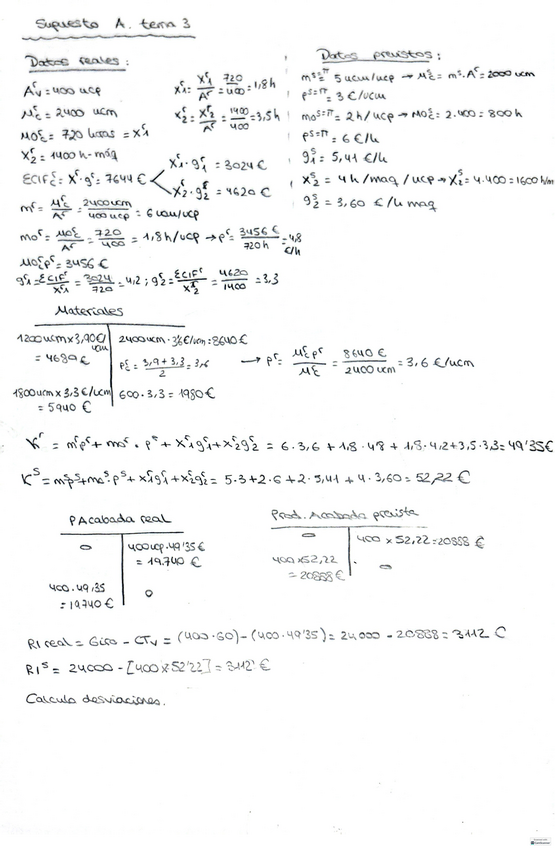 Supuesto A. tema 3
Datos reales:
A^r_v = 400 ucp
M^r_c = 2400 ucm
MO^r_c = 720 horas = X^r_1
X^r_2 = 1400 h-máq
ECIF^r_c = X^r·g^r = 7644 €
X^r_1·g^r_1 = 3024 €
X^r_2·g^r_2 = 4620 €
X^r_1 = X^r_1/A^r = 720/400 = 1,8h
X^r_2 = X^r_2/A^r = 1400/400 = 3,5h
m^r = M^r_c/A^r = 2400ucm/400ucp = 6 ucm/ucp
mo^r = MO^r_c/A^r = 720/400 = 1,8 h/ucp → p^r = 3456 €/720 h = 4,8 €/h
MO^r_c p^r = 3456 €
g^r_1 = ECIF^r/X^r_1 = 3024/720 = 4,2 ; g^r_2 = ECIF^r/X^r_2 = 4620/1400 = 3,3
Datos previstos:
m^s=π 5 ucm/ucp → M^s_c = m^s·A^r = 2000 ucm
p^s=π = 3 €/ucm
mo^s=π = 2h/ucp → MO^s_c = 2.400 = 800 h
p^s=π = 6 €/h
g^s_1 = 5,41 €/h
X^s_2 = 4 h/maq/ucp → X^s_2 = 4.400 = 1600 h/m
g^s_2 = 3,60 €/h maq
Materiales
1200ucm x 3,90€/ucm
= 4680 €
1800ucm x 3,3€/ucm
= 5940 €
2400ucm · 3,6€/ucm = 8640€
p^r_c = 3,9+3,3/2 = 3,6
600·3,3 = 1980 €
→ p^r = M^r_c p^r/M^r_c = 8640 €/2400 ucm = 3,6 €/ucm
K^r = m^r p^r + mo^r · p^r + X^r_1 g^r_1 + X^r_2 g^r_2 = 6·3,6 + 1,8·4,8 + 1,8·4,2 + 3,5·3,3 = 49'35€
K^s = m^s p^s + mo^s·p^s + X^s_1 g^s_1 + X^s_2 g^s_2 = 5·3 + 2·6 + 2·5,41 + 4·3,60 = 52,22 €
PAcabada real
0
400·49,35
= 19.740 €
400ucp·49'35€
= 19.740 €
0
Prod. Acabada prevista
0
400x52,22
= 20888 €
400 x 52,22 = 20888 €
0
RI real = Giro - CTv = (400·60) - (400·49'35) = 24.000 - 20888 = 3112 €
RI^s = 24000 - [400x52'22] = 3112 €
Calculo desviaciones.